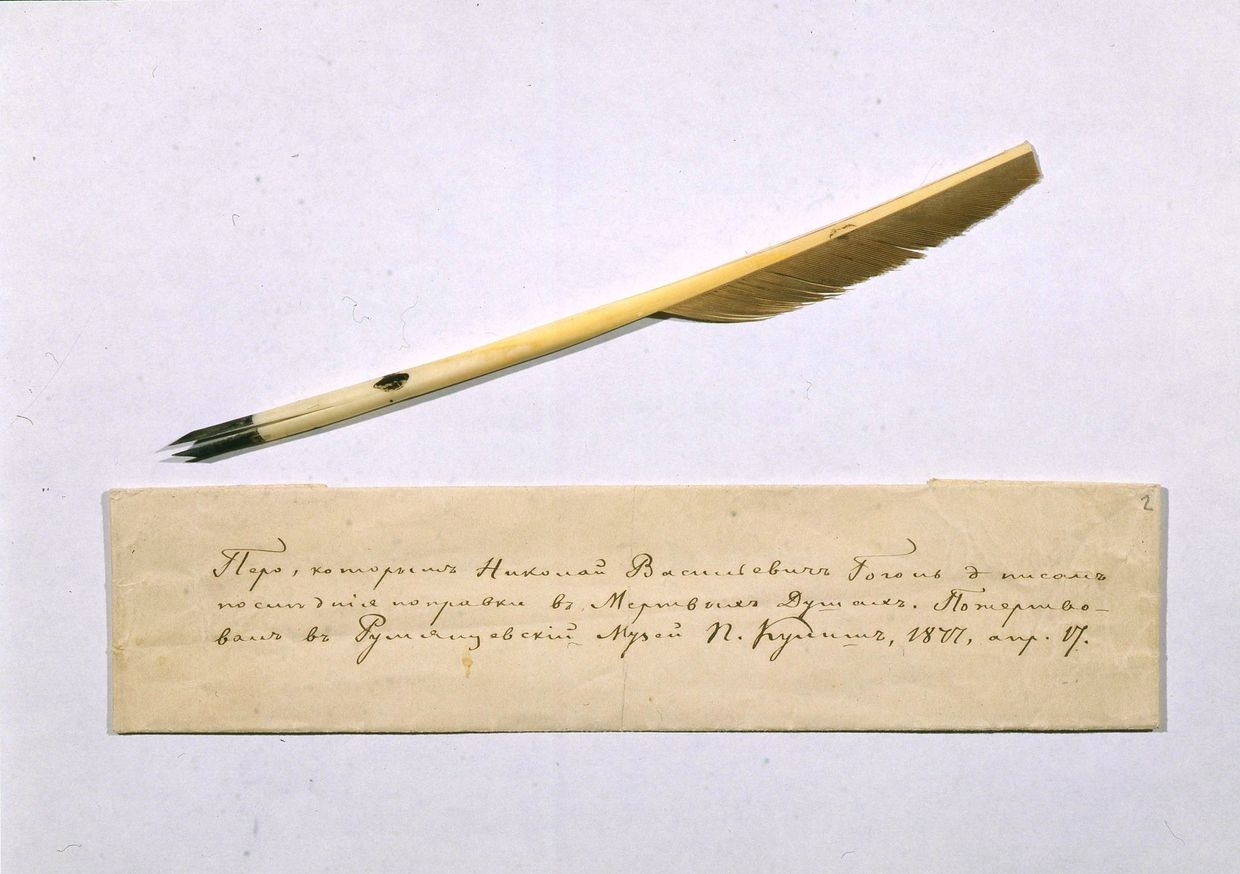 2
Перо, которымъ Николай Васильевичъ Гоголь писалъ
послѣднія поправки въ Мертвыхъ Душахъ. Пожертво-
валъ въ Румянцевскій Музей П. Кулишъ, 1877, апр. 17.